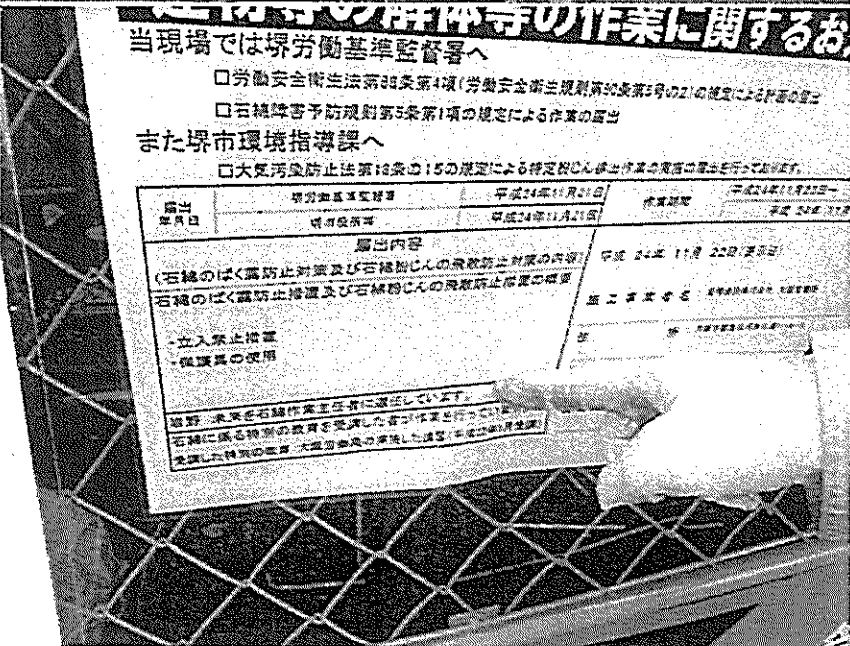 建物等の解体等の作業に関するお
当現場では堺労働基準監督署へ
□労働安全衛生法第88条第4項(労働安全衛生規則第90条第5号の2)の規定による計画の届出
□石綿障害予防規則第5条第1項の規定による作業の届出
また堺市環境指導課へ
□大気汚染防止法第18条の15の規定による特定粉じん排出作業の実施の届出を行っております。
届出
年月日
堺労働基準監督署
平成24年11月21日
作業期間
平成24年11月22日~
平成24年11月21日
届出内容
(石綿のばく露防止対策及び石綿粉じんの飛散防止対策の内容)
平成 24年 11月 22日(表示日)
石綿のばく露防止措置及び石綿粉じんの飛散防止措置の概要
施工事業者名
・立入禁止措置
・保護具の使用
を石綿作業主任者に選任しています。
石綿に係る特別の教育を受講した者が作業を行ってい
受講した特別の教育